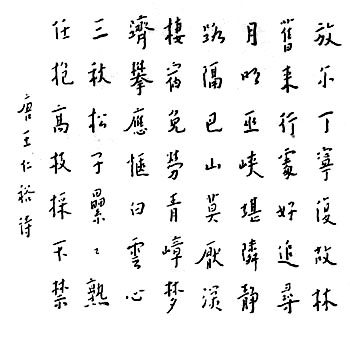 放尔丁寧復故林
舊来行處好追尋
月明巫峽堪隣靜
路隔巴山莫厭深
棲宿免勞青嶂梦
濟攀應愜白雲心
三秋松子纍々熟
任抱高枝採不禁
唐王仁裕詩